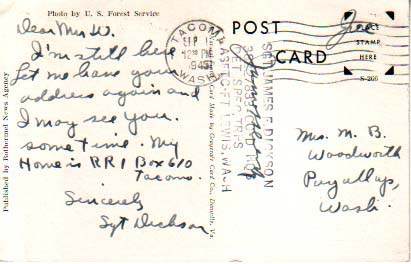 Photo by U. S. Forest Service
Dear Mrs W.
I'm still here
Let me have your
address again and
I may see you
sometime. My
Home is RR 1 Box 610
Tacoma.
Sincerely
Sgt Dickson
Published by Redbound News Agency
Card Made by Graycraft Card Co., Danville, Va.
TACOMA
SEP
12 PM
WASH.
POST CARD
PLACE
STAMP
HERE
S-266
SGT JAMES E DICKSON
FT LEWIS, WASH
Mrs. M. B.
Woodworth
Puyallup,
Wash.